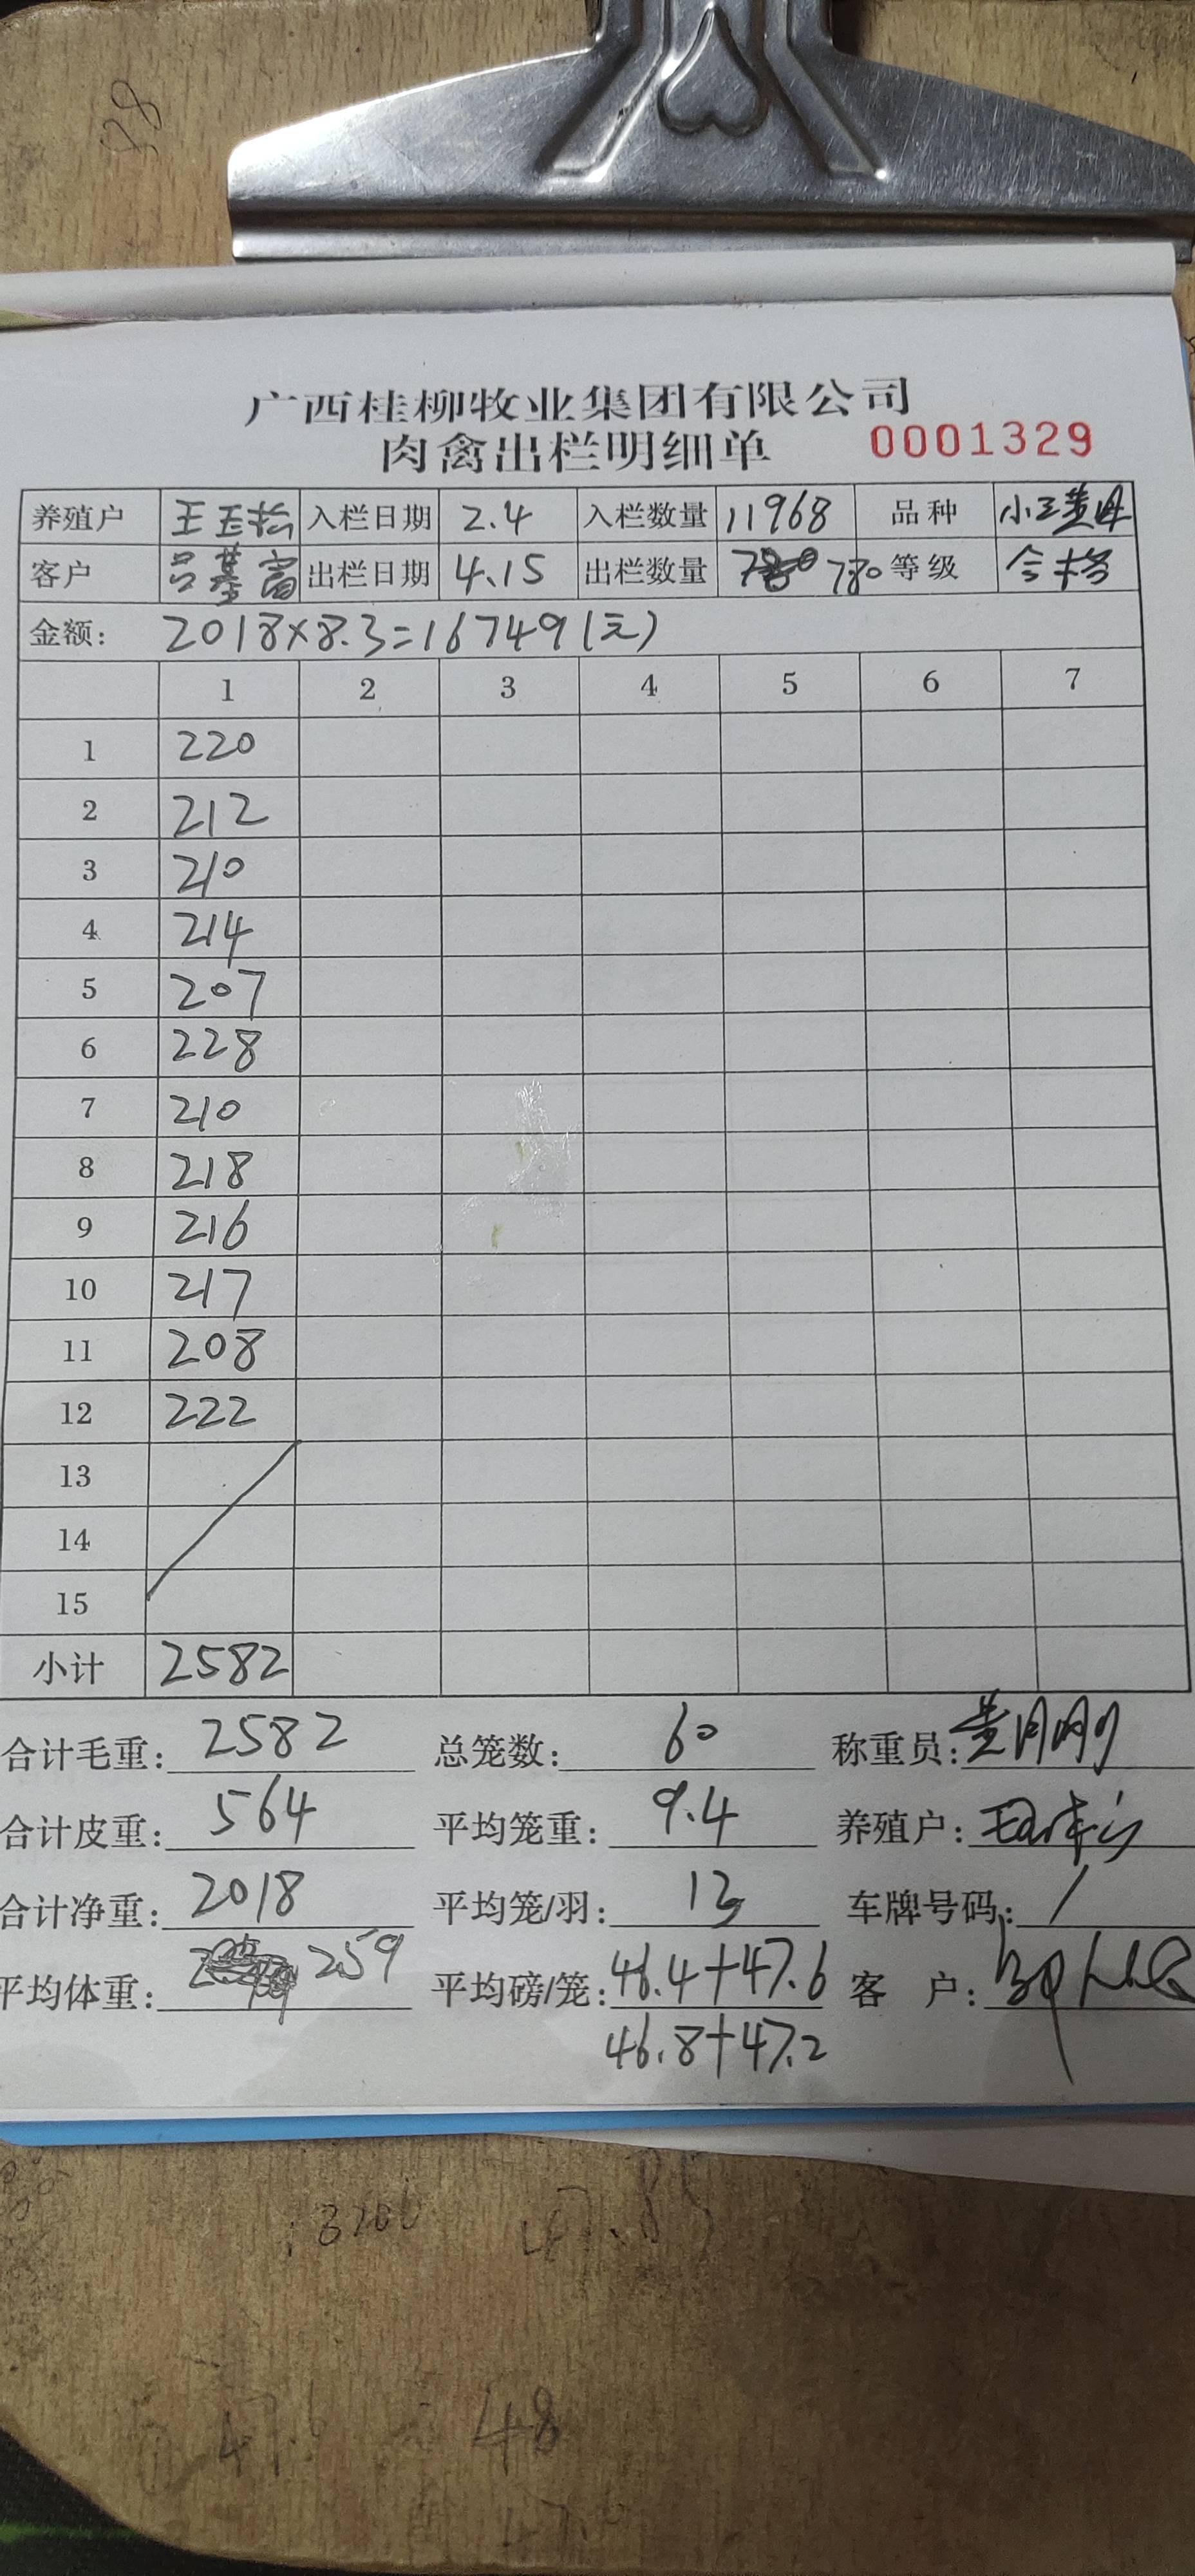 58
广西桂柳牧业集团有限公司
肉禽出栏明细单 0001329
养殖户 王玉 入栏日期 2.4 入栏数量 11968 品种 小三黄
客户 吕基富 出栏日期 4.15 出栏数量 780 等级 合格
金额: 2018×8.3=16749(元)
1 2 3 4 5 6 7
1 220
2 212
3 210
4 214
5 207
6 228
7 210
8 218
9 216
10 217
11 208
12 222
13
14
15
小计 2582
合计毛重: 2582 总笼数: 60 称重员: 黄月刚
合计皮重: 564 平均笼重: 9.4 养殖户:
合计净重: 2018 平均笼/羽: 13 车牌号码: /
平均体重: 259 平均磅/笼: 46.4+47.6 客 户:
46.8+47.2
47.6 48